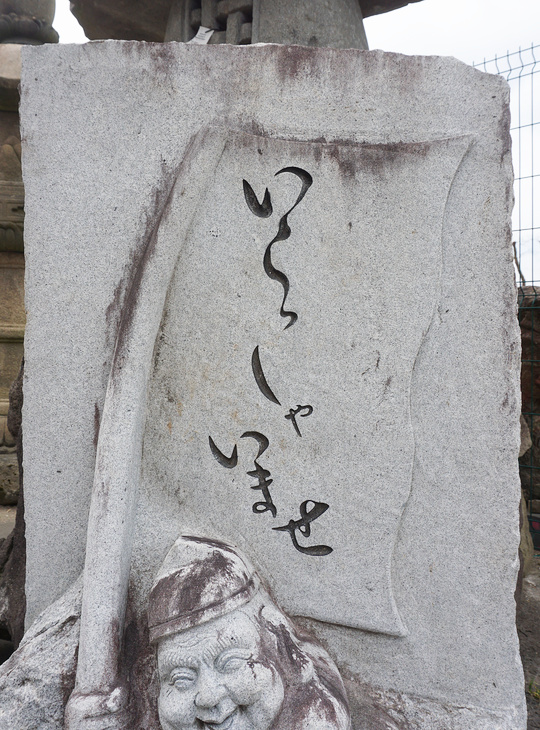 いらっしゃいませ